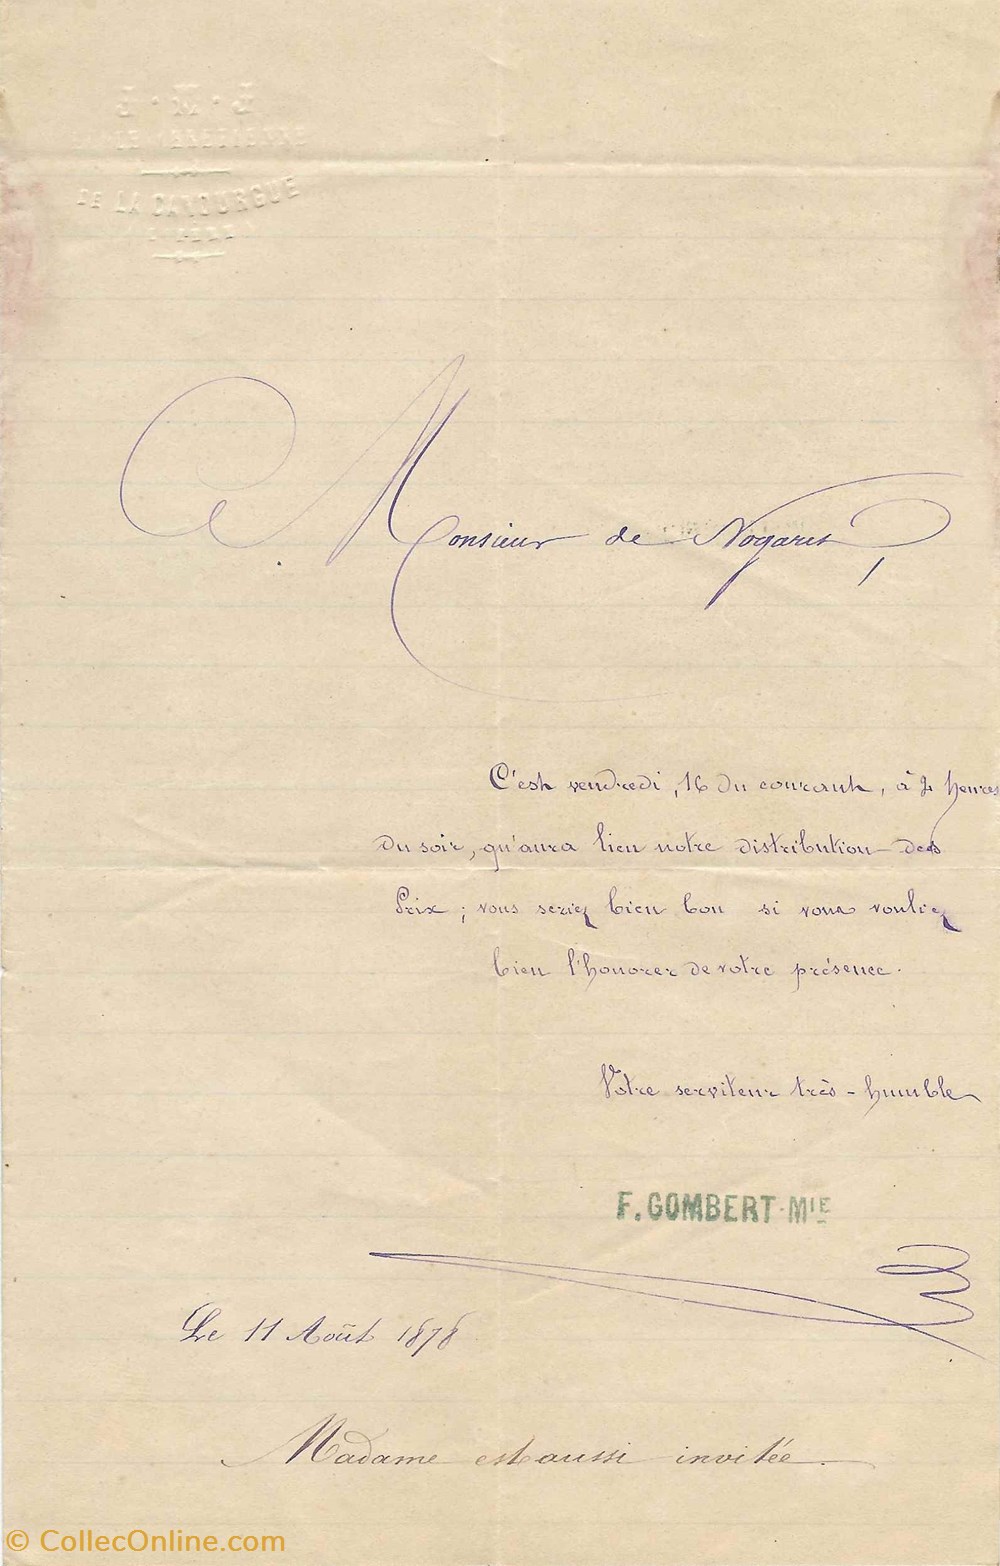 DE LA CANOURGUE
Monsieur de Nogaret,
C'est vendredi, 16 du courant, à 2 heures
du soir, qu'aura lieu notre distribution des
Prix ; vous seriez bien bon si vous vouliez
bien l'honorer de votre présence.
Votre serviteur très-humble
F. GOMBERT-MIE
Le 11 Août 1878
Madame est aussi invitée.
© CollecOnline.com